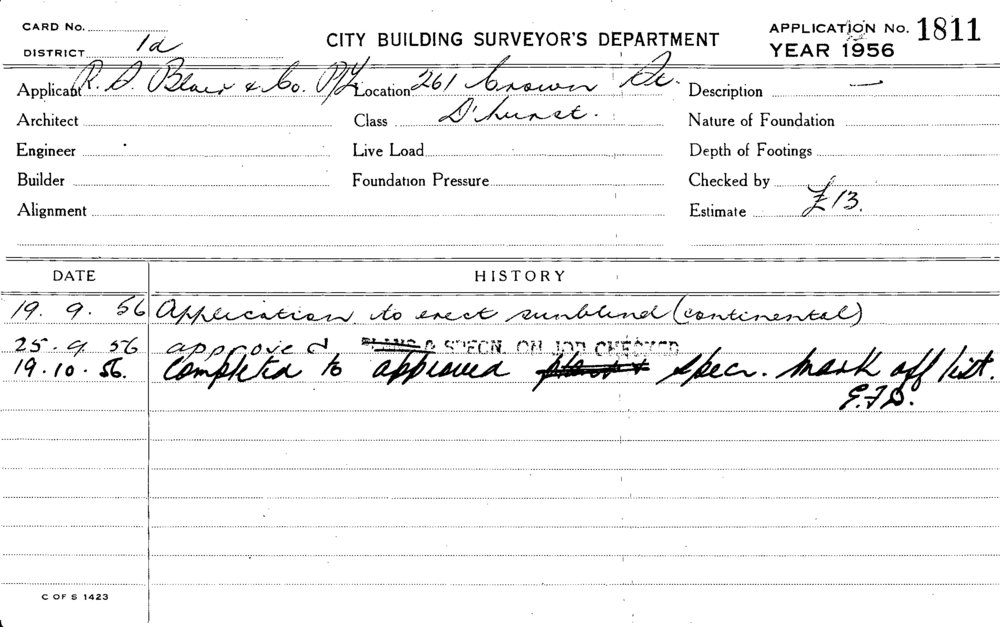 CARD No.
DISTRICT 1d
CITY BUILDING SURVEYOR'S DEPARTMENT
APPLICATION No. 1811
YEAR 1956
Applicant R. D. Blair & Co. P/L
Location 261 Crown St.
Description —
Architect
Class D'hurst.
Nature of Foundation
Engineer
Live Load
Depth of Footings
Builder
Foundation Pressure
Checked by
Alignment
Estimate £13.
DATE HISTORY
19. 9. 56 Application to erect sunblind (continental)
25. 9. 56 approved PLANS & SPECN. ON JOB CHECKED
19. 10. 56. Completed to approved plans & specn. Mark off list.
E.F.D.
C OF S 1423